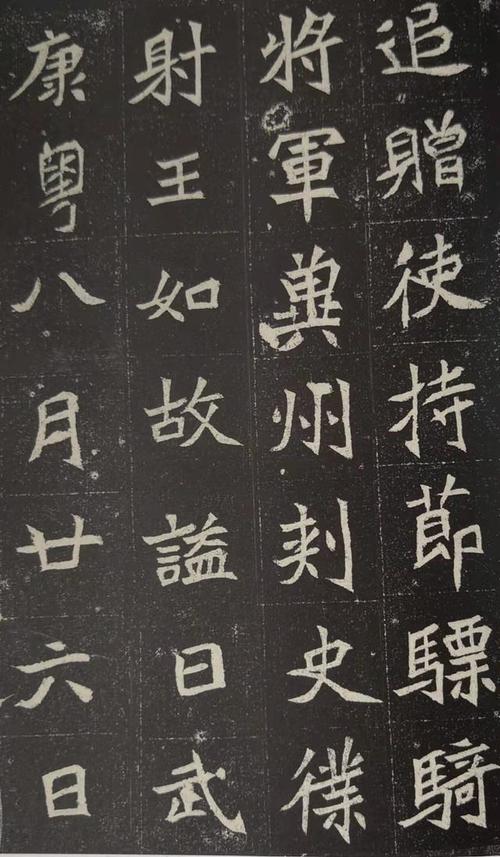 追贈使持節驃騎
將軍冀州刾史僕
射王如故謚曰武
康粵八月廿六日